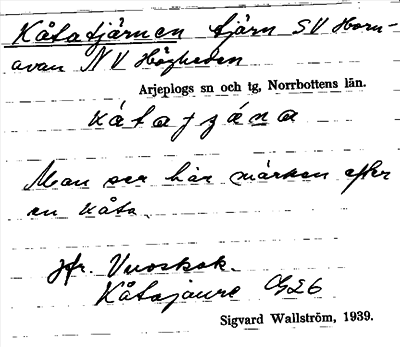 Kåtatjärnen tjärn SV Horn-
avan NV Högheden
Arjeplogs sn och tg, Norrbottens län.
kátatjäna
Man ser här märken efter
en kåta
jfr. Vuoskok.
Kåtajaure G26
Sigvard Wallström, 1939.